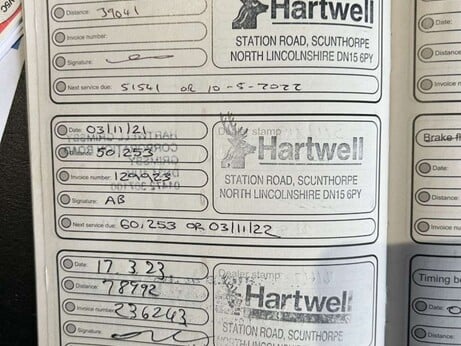 Distance: 39041
Invoice number:
Signature:
Next service due: 51541 OR 10-5-2022
Hartwell
STATION ROAD, SCUNTHORPE
NORTH LINCOLNSHIRE DN15 6PY
Date: 03/11/21
Distance: 50,253
Invoice number: 129923
Signature: AB
Next service due: 60,253 OR 03/11/22
Dealer stamp
Hartwell
STATION ROAD, SCUNTHORPE
NORTH LINCOLNSHIRE DN15 6PY
Date: 17.3.23
Distance: 78992
Invoice number: 236243
Signature:
Dealer stamp
Hartwell
STATION ROAD, SCUNTHORPE
NORTH LINCOLNSHIRE DN15 6PY
Date:
Distance:
Invoice n
Brake fl
Date:
Distance:
Invoice nu
Timing be
Date: